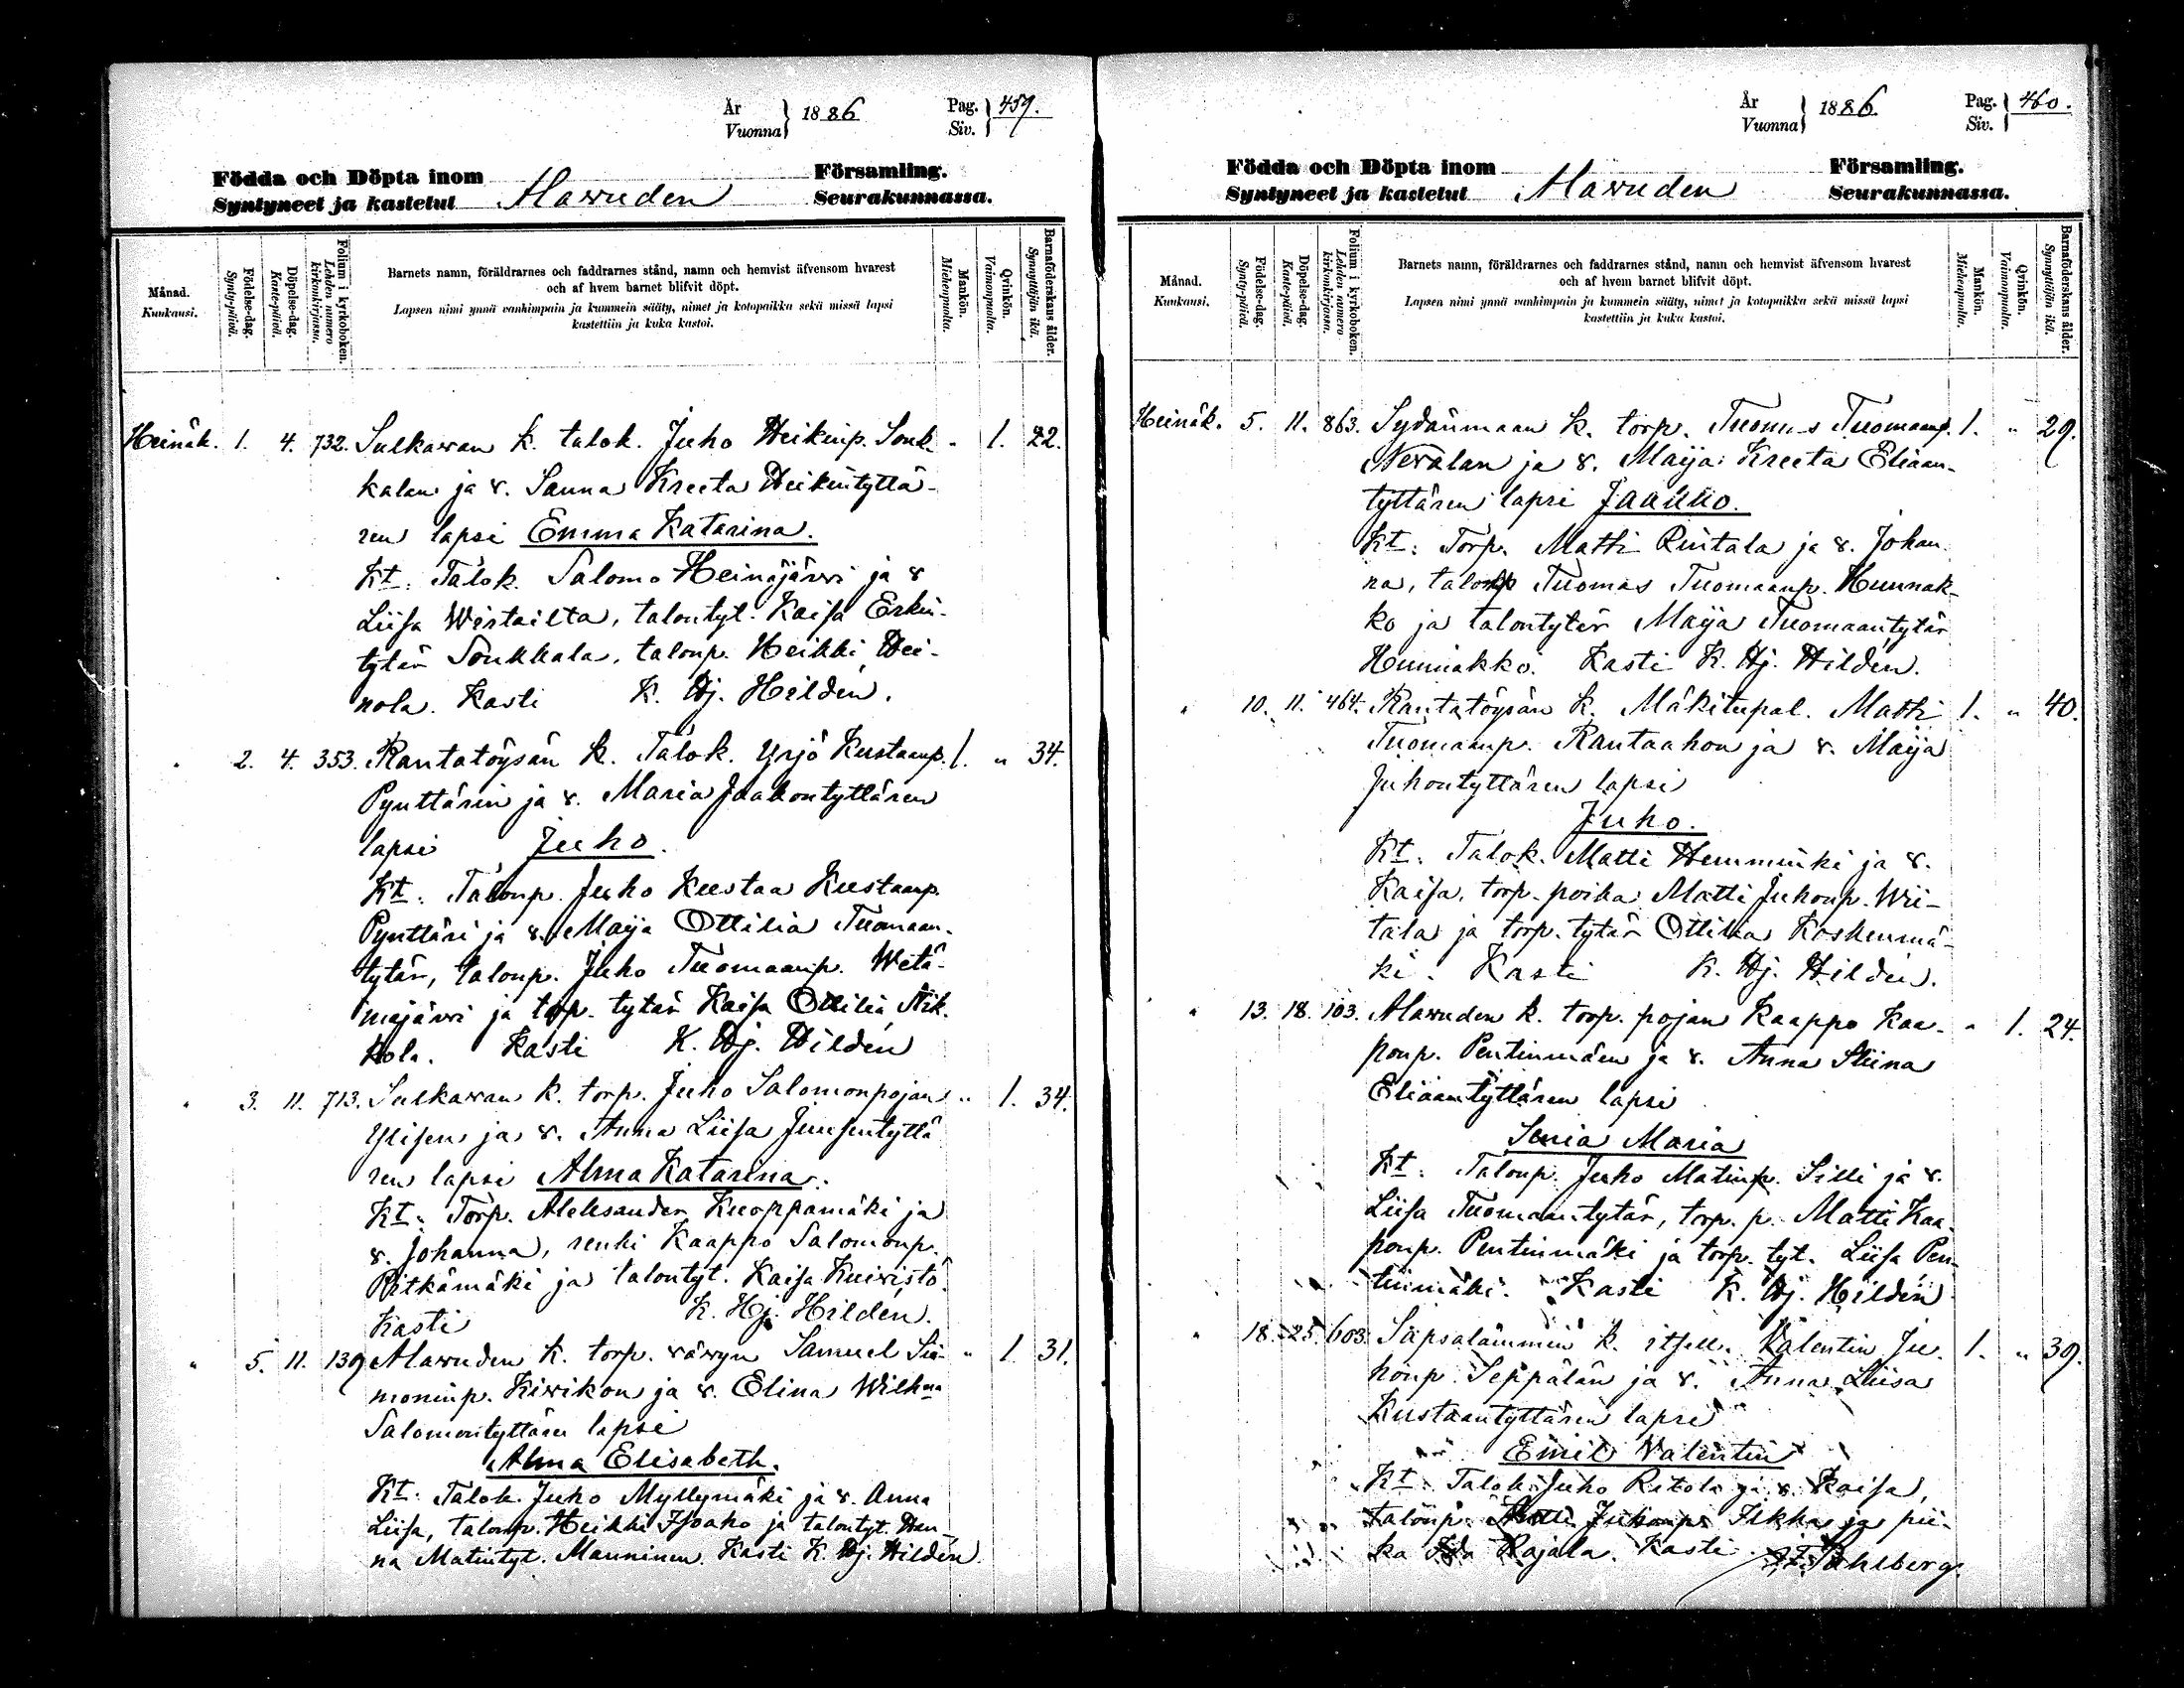 År
Vuonna } 1886
Pag.
Siv. } 459.
Födda och Döpta inom Församling.
Syntyneet ja kastetut Alavuden Seurakunnassa.
Månad.
Kuukausi.
Födelse-dag.
Synty-päivä.
Döpelse-dag.
Kaste-päivä.
Folium i kyrkoboken.
Lehden numero kirkonkirjassa.
Barnets namn, föräldrarnes och faddrarnes stånd, namn och hemvist äfvensom hvarest
och af hvem barnet blifvit döpt.
Lapsen nimi ynnä vanhimpain ja kummein sääty, nimet ja kotopaikka sekä missä lapsi
kastettiin ja kuka kastoi.
Mankön.
Miehenpuolta.
Qvinkön.
Vaimonpuolta.
Barnaföderskans ålder.
Synnyttäjän ikä.
Heinäk. 1. 4. 732. Sulkawan k. talok. Juho Heikinp. Souk- " 1. 22.
kalan ja v. Sanna Kreeta Heikintyttä-
ren lapsi Emma Katarina.
Kt: Talok. Salomo Heinäjärvi ja v
Liisa Wirtailta, talontyt. Kaisa Erkin-
tytär Soukkala, talonp. Heikki Hei-
nola. Kasti K. Hj. Hildén.
" 2. 4. 353. Rantatöysän k. Talok. Yrjö Kustaanp. 1. " 34.
Pynttärin ja v. Maria Jaakontyttären
lapsi Juho.
Kt: Talonp. Juho Kustaa Kustaanp.
Pynttäri ja v. Maija Ottilia Tuomaan-
tytär, talonp. Juho Tuomaanp. Wetä-
mäjärvi ja torp. tytär Kaisa Ottilia Nik-
kola. Kasti K. Hj. Hildén
" 3. 11. 713. Sulkawan k. torp. Juho Salomonpojan " 1. 34.
Ylisen ja v. Anna Liisa Juusentyttä
ren lapsi Alma Katarina.
Kt: Torp. Aleksander Kuoppamäki ja
v. Johanna, renki Kaappo Salomonp.
Pitkämäki ja talontyt. Kaisa Kuivisto.
Kasti K. Hj. Hildén.
" 5. 11. 139 Alavuden k. torp. vävyn Samuel Si- " 1 31.
moninp. Kivikon ja v. Elina Wilhna
Salomontyttären lapsi
Alma Elisabeth.
Kt: Talok. Juho Myllymäki ja v. Anna
Liisa, talonp. Heikki Isoaho ja talontyt. Han-
na Matintyt. Manninen. Kasti K. Hj. Hildén.
År
Vuonna } 1886.
Pag.
Siv. } 460.
Födda och Döpta inom Församling.
Syntyneet ja kastetut Alavuden Seurakunnassa.
Månad.
Kuukausi.
Födelse-dag.
Synty-päivä.
Döpelse-dag.
Kaste-päivä.
Folium i kyrkoboken.
Lehden numero kirkonkirjassa.
Barnets namn, föräldrarnes och faddrarnes stånd, namn och hemvist äfvensom hvarest
och af hvem barnet blifvit döpt.
Lapsen nimi ynnä vanhimpain ja kummein sääty, nimet ja kotopaikka sekä missä lapsi
kastettiin ja kuka kastoi.
Mankön.
Miehenpuolta.
Qvinkön.
Vaimonpuolta.
Barnaföderskans ålder.
Synnyttäjän ikä.
Heinäk. 5. 11. 863. Sydänmaan k. torp. Tuomas Tuomaanp. 1. " 29.
Nevalan ja v. Maija Kreeta Eliaan-
tyttären lapsi Jaakko.
Kt: Torp. Matti Rintala ja v. Johan
na, talonp Tuomas Tuomaanp. Hunnak-
ko ja talontytär Maija Tuomaantytär
Hunnakko. Kasti K. Hj. Hildén.
" 10. 11. 464. Rantatöysän k. Mäkitupal. Matti 1. " 40.
Tuomaanp. Rantaahon ja v. Maija
Juhontyttären lapsi
Juho.
Kt: Talok. Matti Hemminki ja v.
Kaisa, torp. poika Matti Juhonp. Wii-
tala ja torp. tytär Ottilia Koskenmä-
ki. Kasti K. Hj. Hildén.
" 13. 18. 103. Alavuden k. torp. pojan Kaappo Kaa- " 1. 24.
ponp. Pentinmäen ja v. Anna Stiina
Eliaantyttären lapsi
Senia Maria
Kt: Talonp. Juho Matinp. Silli ja v.
Liisa Tuomaantytär, torp. p. Matti Kaa-
ponp. Pentinmäki ja torp. tyt. Liisa Pen-
tinmäki. Kasti K. Hj. Hildén
" 18. 25. 603. Säpsalammin k. itsell. Valentin Ju- 1. " 39.
honp. Seppälän ja v. Anna Liisa
Kustaantyttären lapsi
Emil Valentin
Kt: Talok. Juho Ritola ja v. Kaisa,
talonp. Matti Juhonp. Ilkka ja pii-
ka Ida Rajala. Kasti Pahlberg.